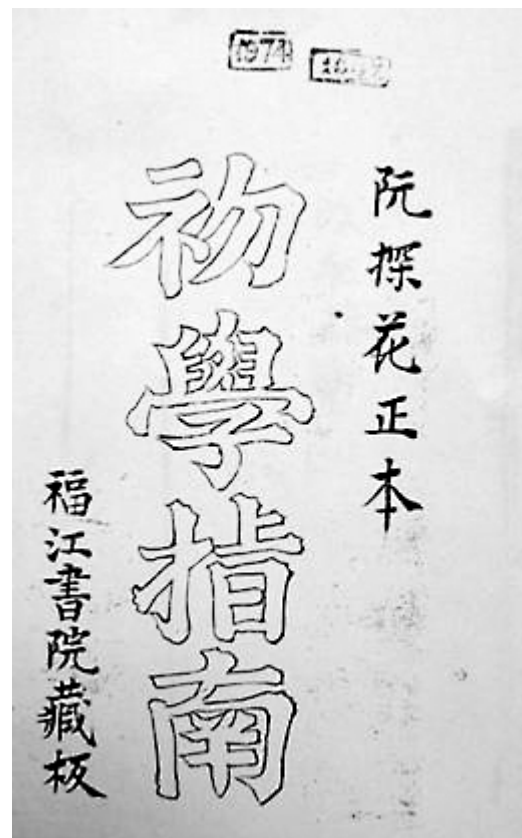 1974
阮探花正本
初學指南
福江書院藏板